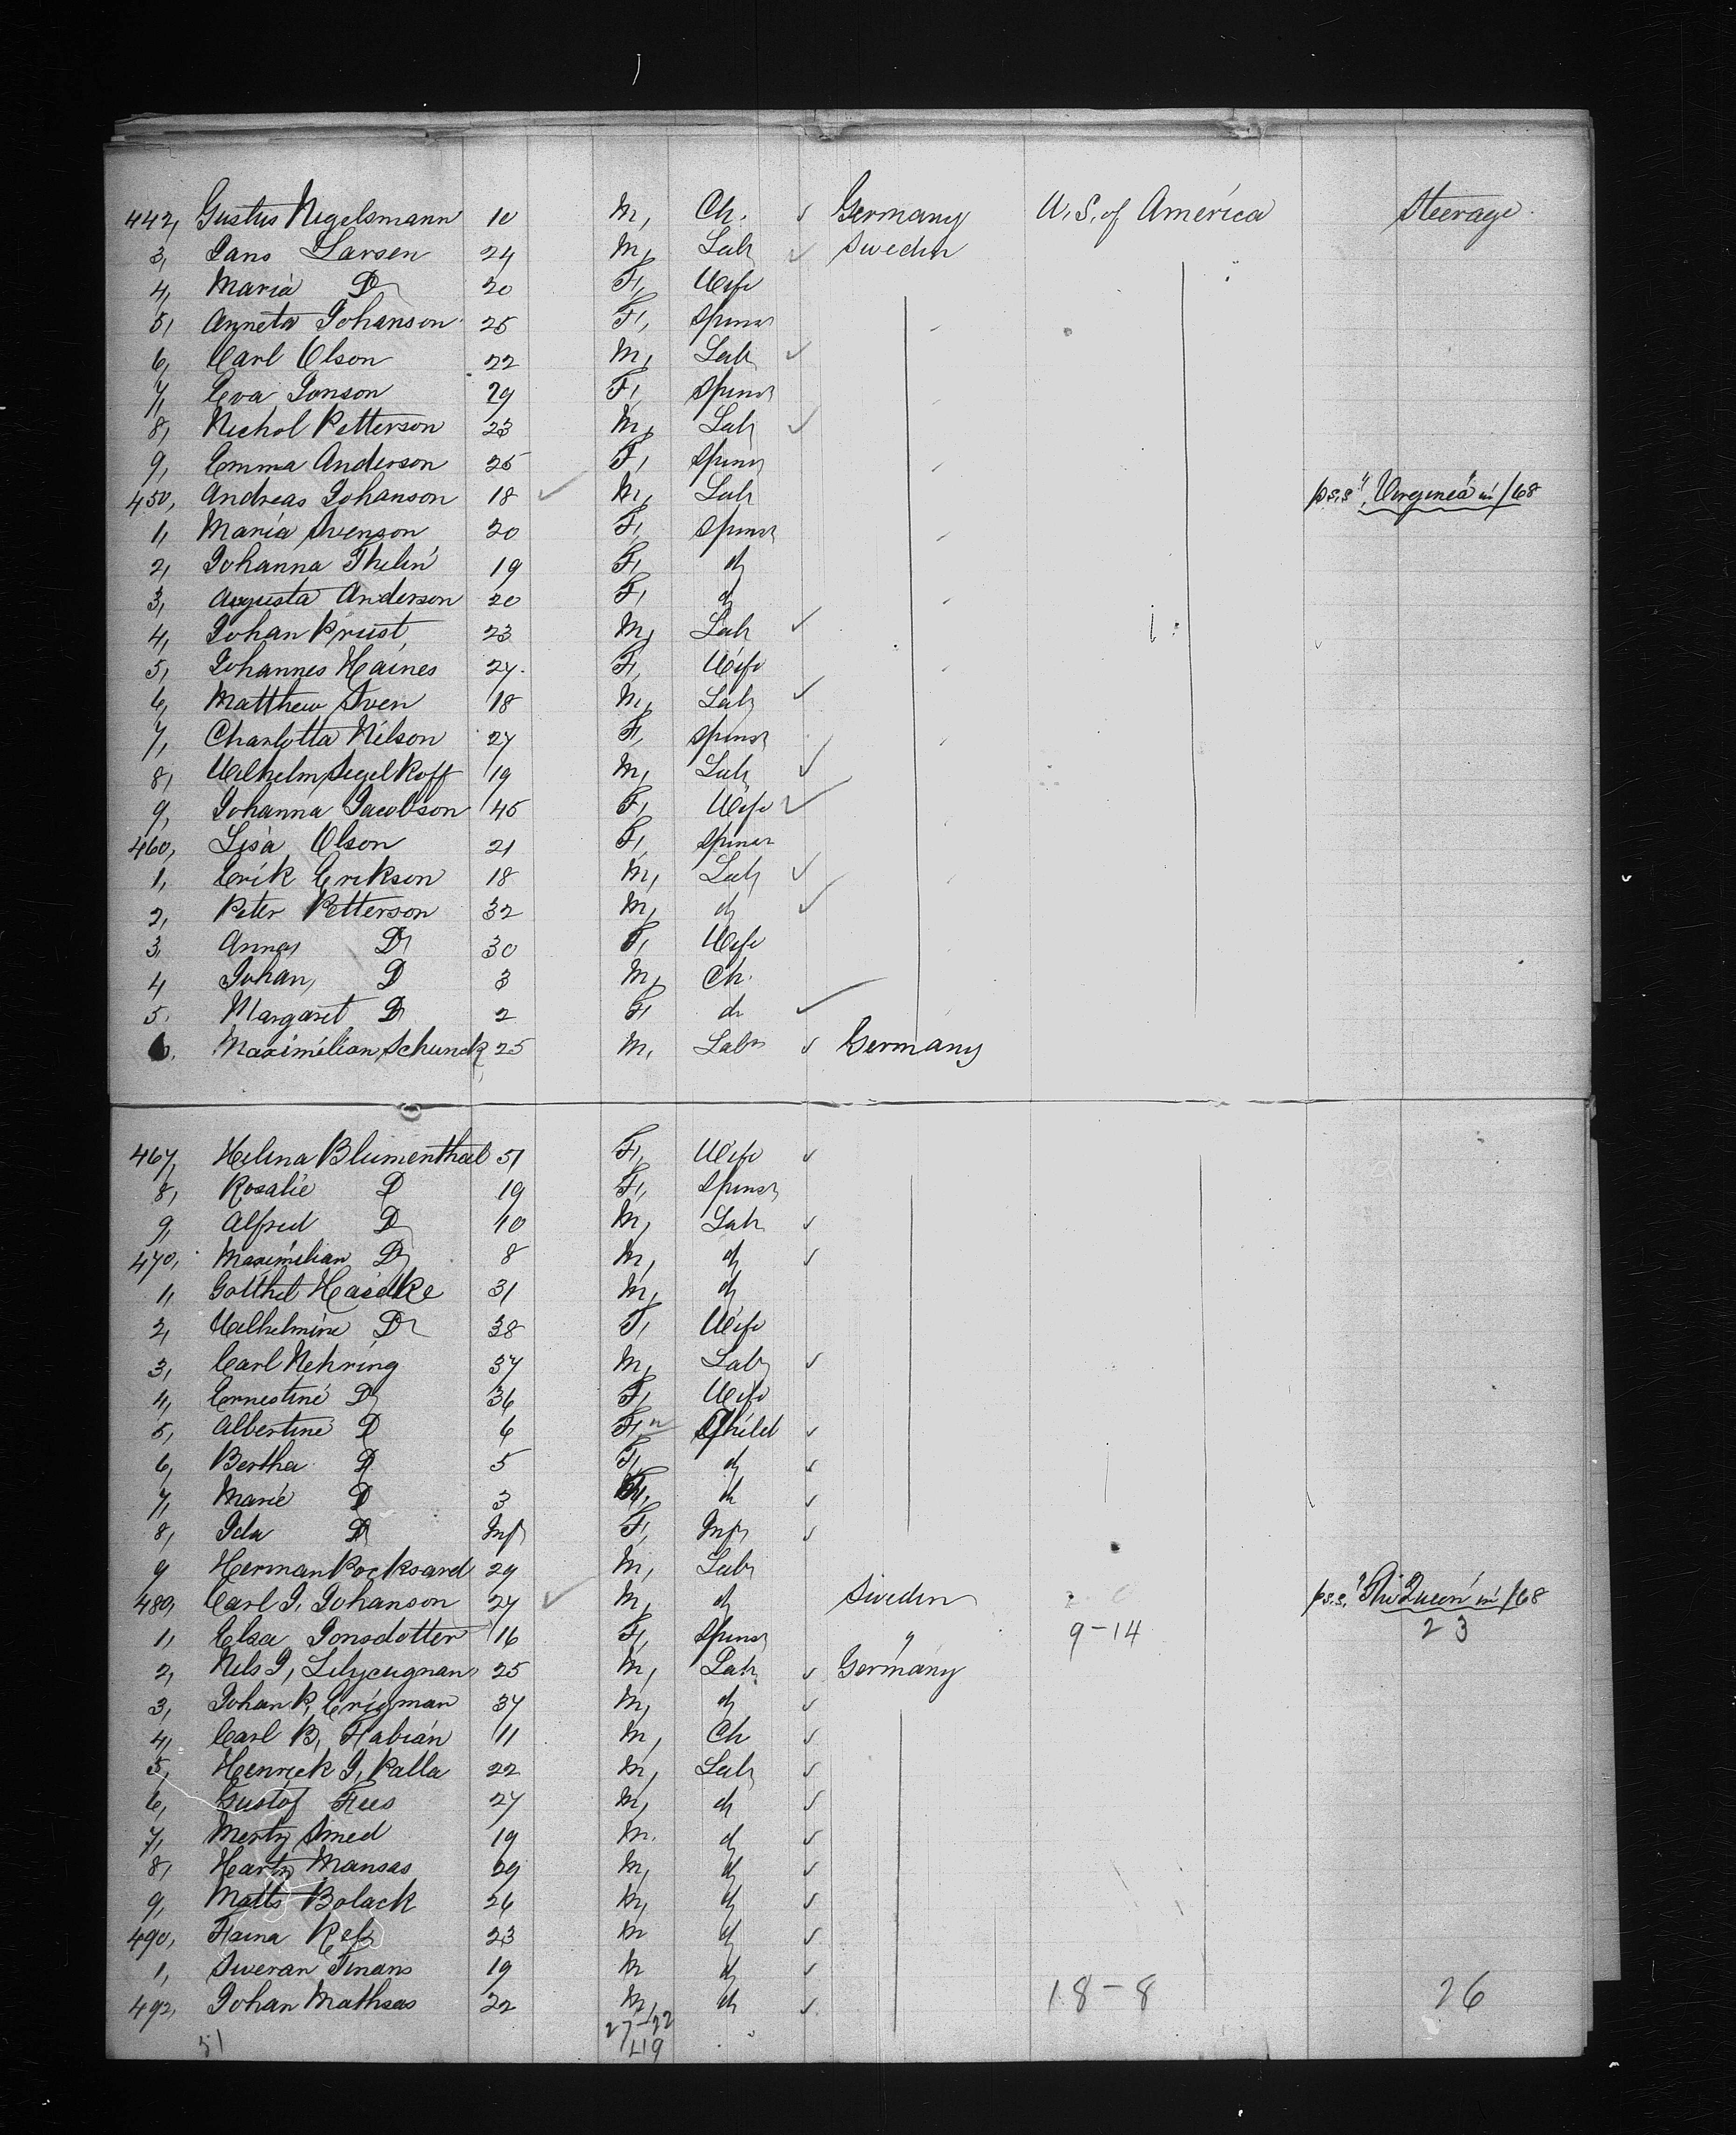 442, Gustus Negelsmann 10 M, Ch. Germany U.S. of America Steerage.
3, Jans Larsen 24 M, Labr Sweden
4, Maria Do 20 F, Wife
5, Anneta Johanson 25 F, Spinsr
6, Carl Olson 22 M, Labr
7, Eva Jonson 29 F, Spinsr
8, Nichol Petterson 23 M, Labr
9, Emma Anderson 25 F, Spinsr
450, Andreas Johanson 18 M, Labr p.s.s. "Virginia" in /68
1, Maria Svenson 20 F, Spinsr
2, Johanna Thelin 19 F, do
3, Augusta Anderson 20 F, do
4, Johan Prust 23 M, Labr
5, Johannes Haines 27 F, Wife
6, Matthew Sven 18 M, Labr
7, Charlotta Nilson 27 F, Spinsr
8, Wilhelm Segelkoff 19 M, Labr
9, Johanna Jacobson 45 F, Wife
460, Lisa Olson 21 F, Spinsr
1, Erik Erikson 18 M, Labr
2, Peter Petterson 32 M, do
3, Anna Do 30 F, Wife
4 Johan, Do 3 M, Ch.
5. Margaret Do 2 F, do
6. Maximilian Schunck 25 M, Labr Germany
467, Helena Blumenthal 51 F, Wife
8, Rosalie Do 19 F, Spinsr
9, Alfred Do 10 M, Labr
470, Maximilian Do 8 M, do
1, Gotthil Haidke 31 M, do
2, Wilhelmine Do 38 F, Wife
3, Carl Nehring 37 M, Labr
4, Ernestine Do 36 F, Wife
5, Albertine Do 6 F, Child
6, Bertha Do 5 F, do
7, Marie Do 3 F, do
8, Ida Do Inft F, Inft
9 Herman Pocksard 29 M, Labr
480, Carl J, Johanson 27 M, do Sweden p.s.s. "The Queen" in /68
1, Elsa Jonsdotter 16 F, Spinsr " 9-14 23
2, Nils J, 25 M, Labr Germany
3, Johan P, Erigman 37 M, do
4, Carl B, Fabian 11 M, Ch
5, Henrick J, Palla 22 M, Labr
6, Gustof Fees 27 M, do
7, Merty Smed 19 M. do
8, Hartn Mansas 29 M, do
9, Matts Bolack 26 M, do
490, Faina 23 M do
1, Sweran Tinans 19 M do
492, Johan Mathsas 22 M, do 18-8 26
27-22
51 49